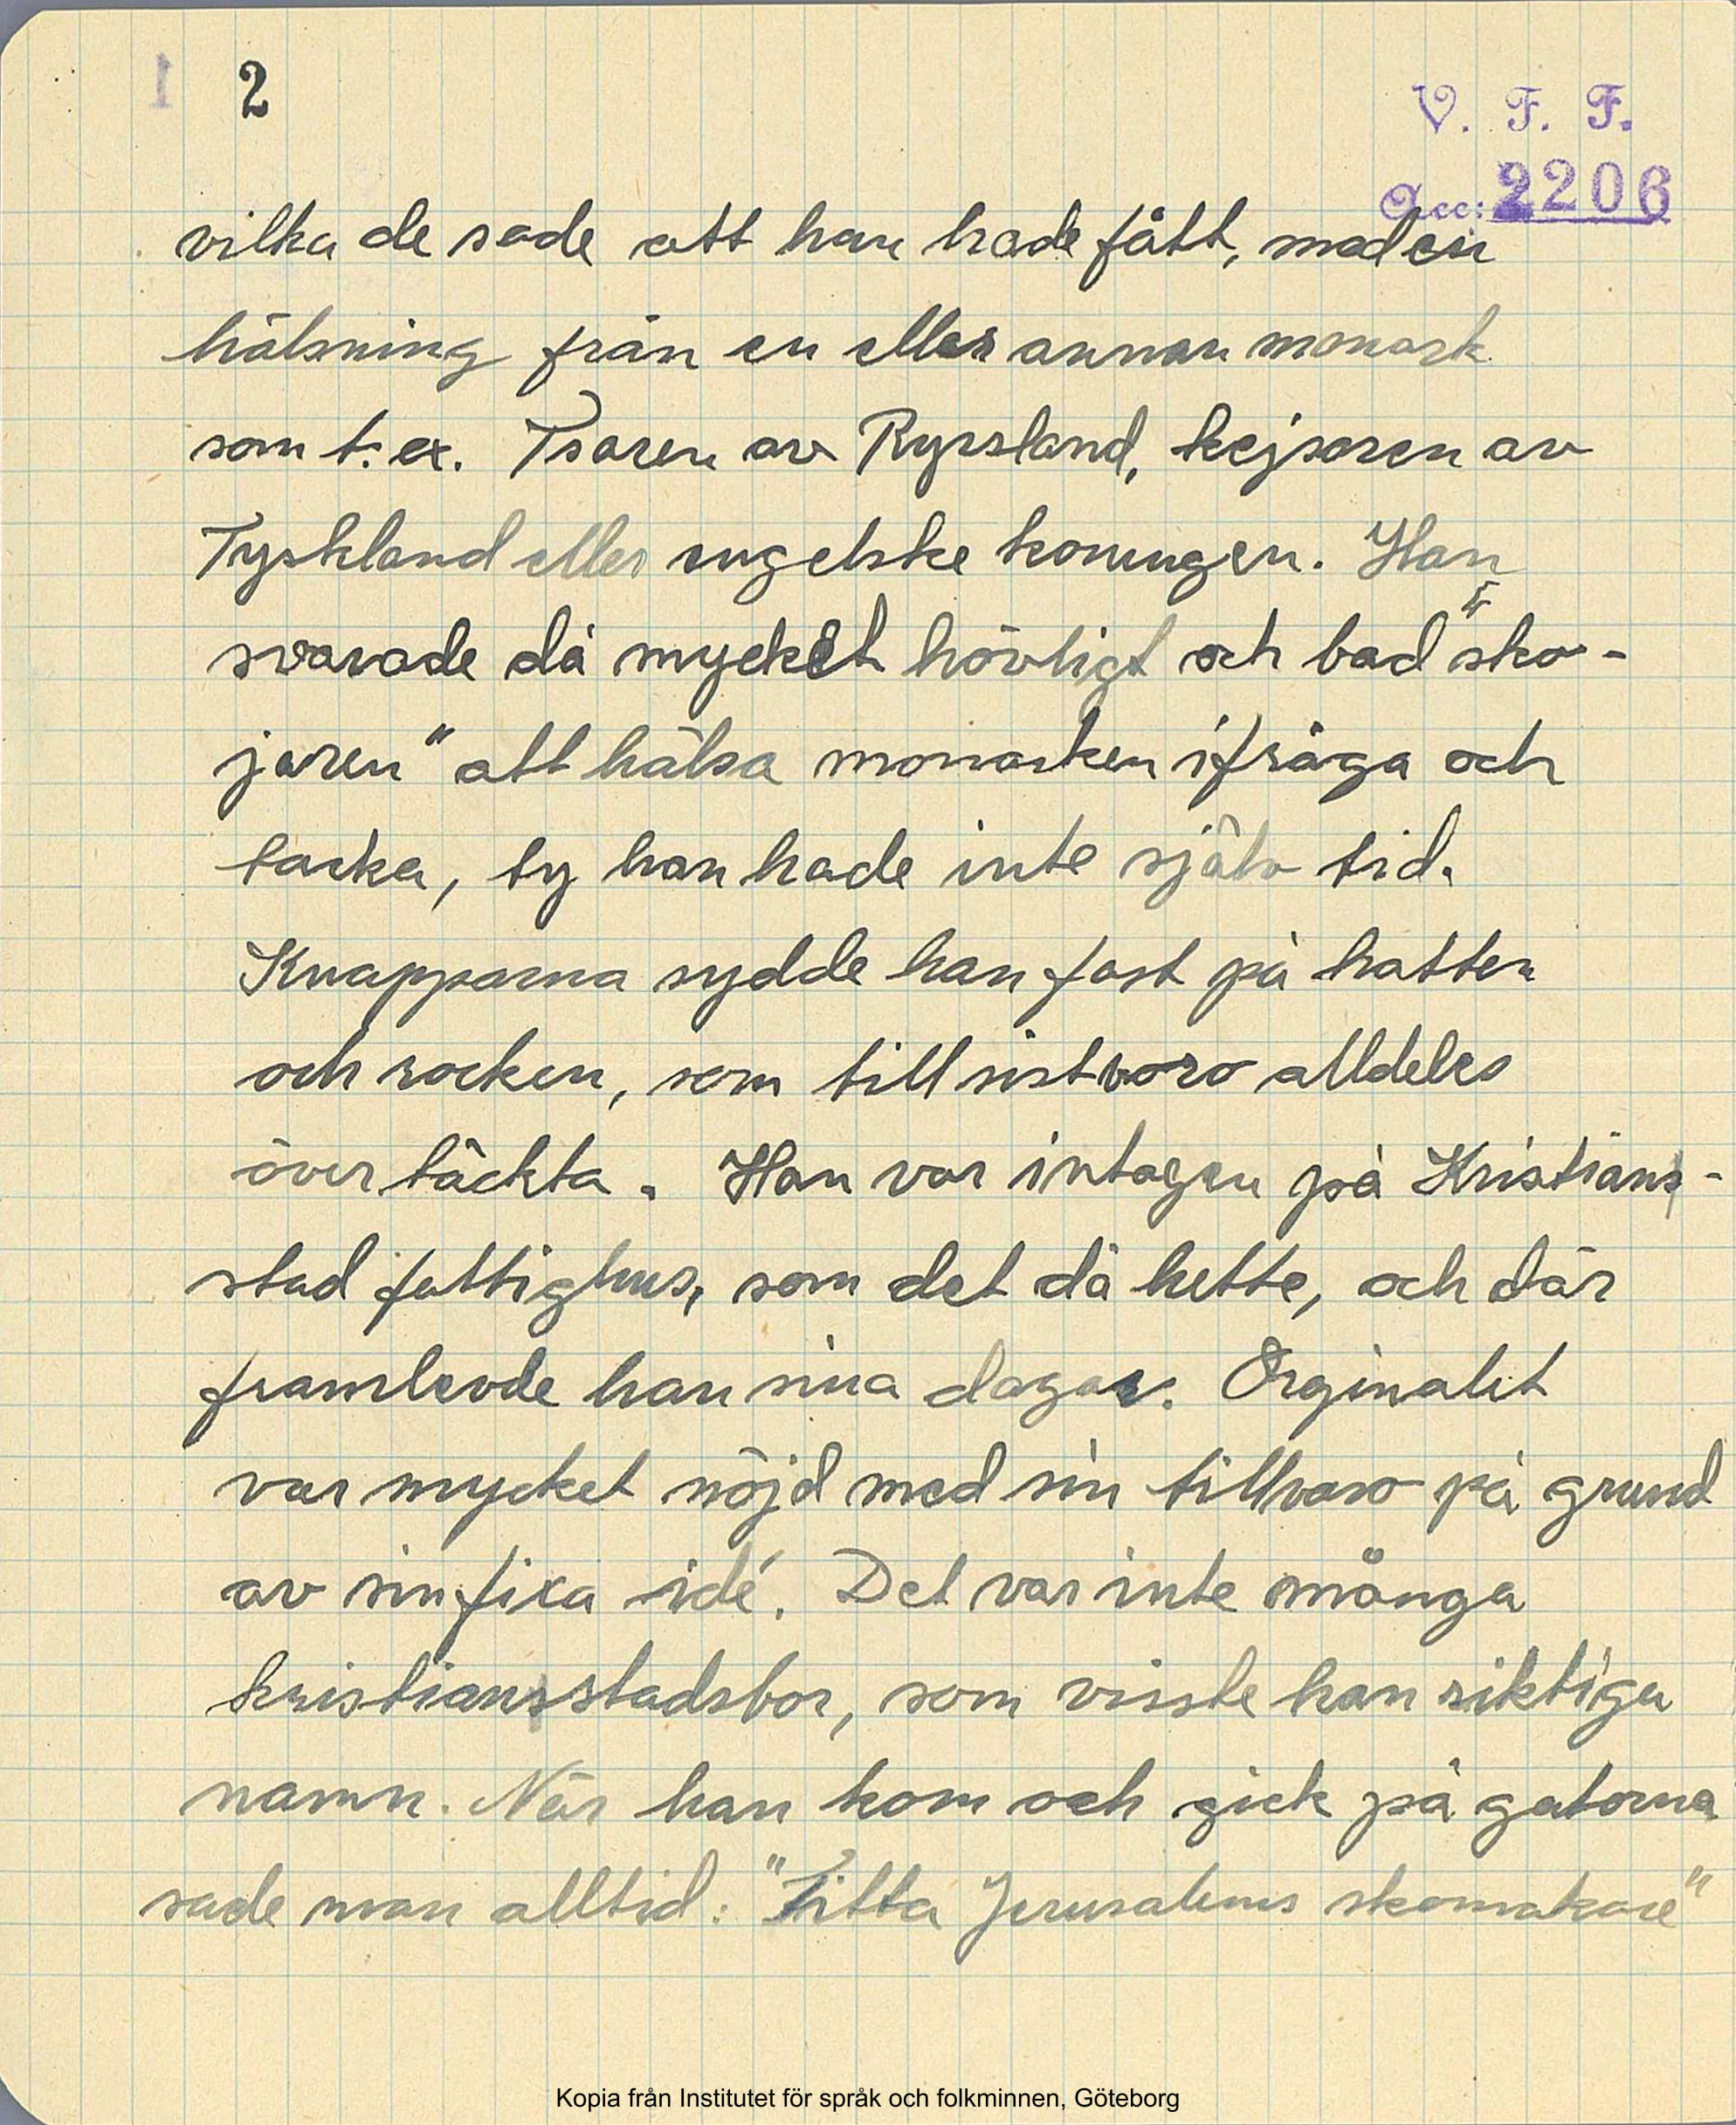 1 2
V. F. F.
Acc: 2206
vilka de sade att han hade fått, med en
hälsning från en eller annan monark
som t.ex. Tsaren av Ryssland, kejsaren av
Tyskland eller engelske konungen. Han
svarade då mycket hövligt och bad "sko-
jaren" att hälsa monarken ifråga och
tacka, ty han hade inte själv tid.
Knapparna sydde han fast på hatten
och rocken, som till sist voro alldeles
övertäckta. Han var intagen på Kristians-
stad fattighus, som det då hette, och där
framlevde han sina dagar. Orginalet
var mycket nöjd med sin tillvaro på grund
av sin fixa idé. Det var inte många
kristiansstadsbor, som visste han riktiga
namn. När han kom och gick på gatorna
sade man alltid: "Titta Jerusalems skomakare"
Kopia från Institutet för språk och folkminnen, Göteborg